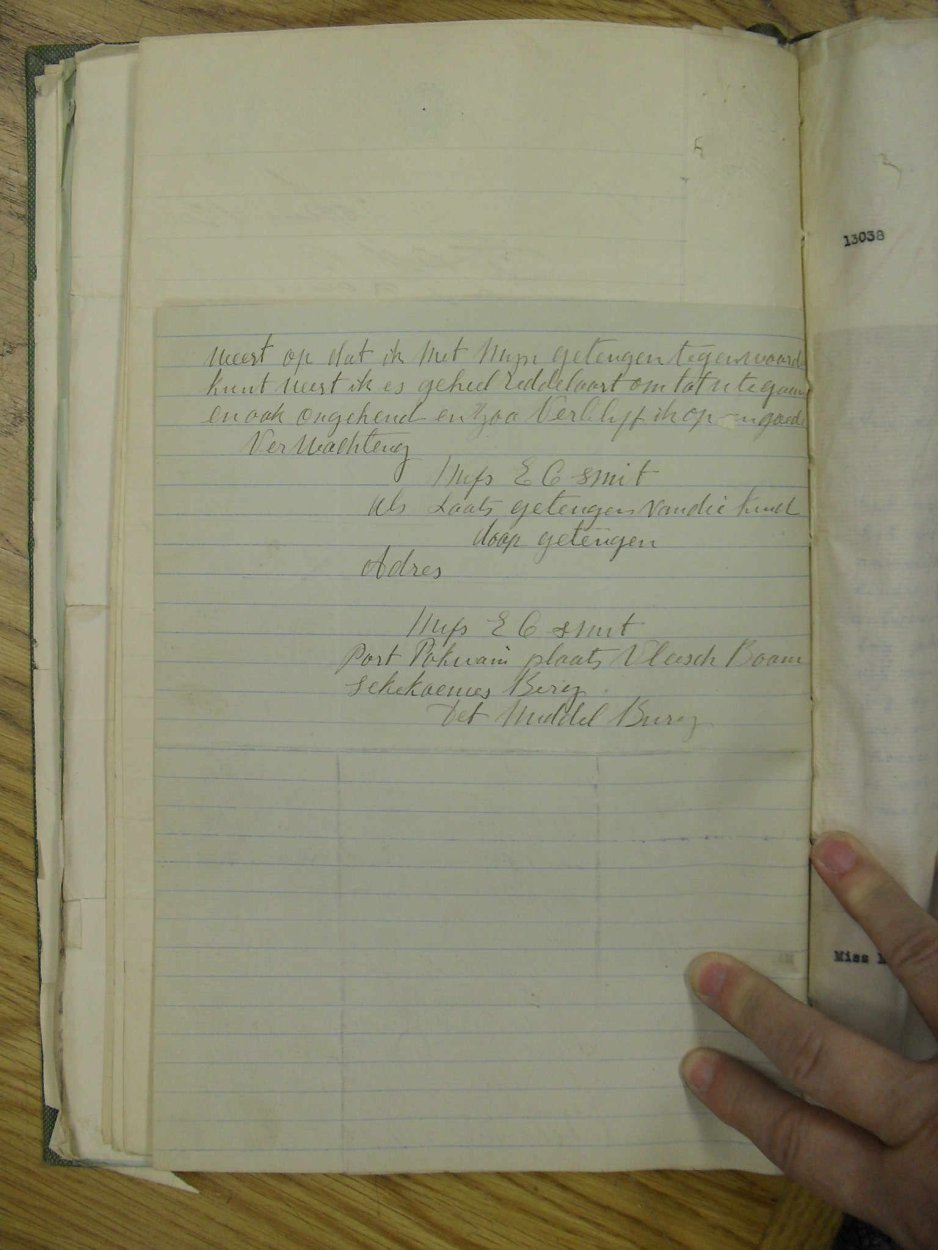 Weert op dat ik Met Mijn getengen tegenwoord
kunt Weert ik es geheel om tat u te gaan
en ook ongekend en zoo Verblyf ik op en goede
Verwachteng
Mifs E C smit
als Laats getengen van die kind
doop getengen
Adres
Mifs E C smit
Port Pokwani plaats Vleesch Boom
sekekoenies Berg
Det Middel Burg
13038
Miss